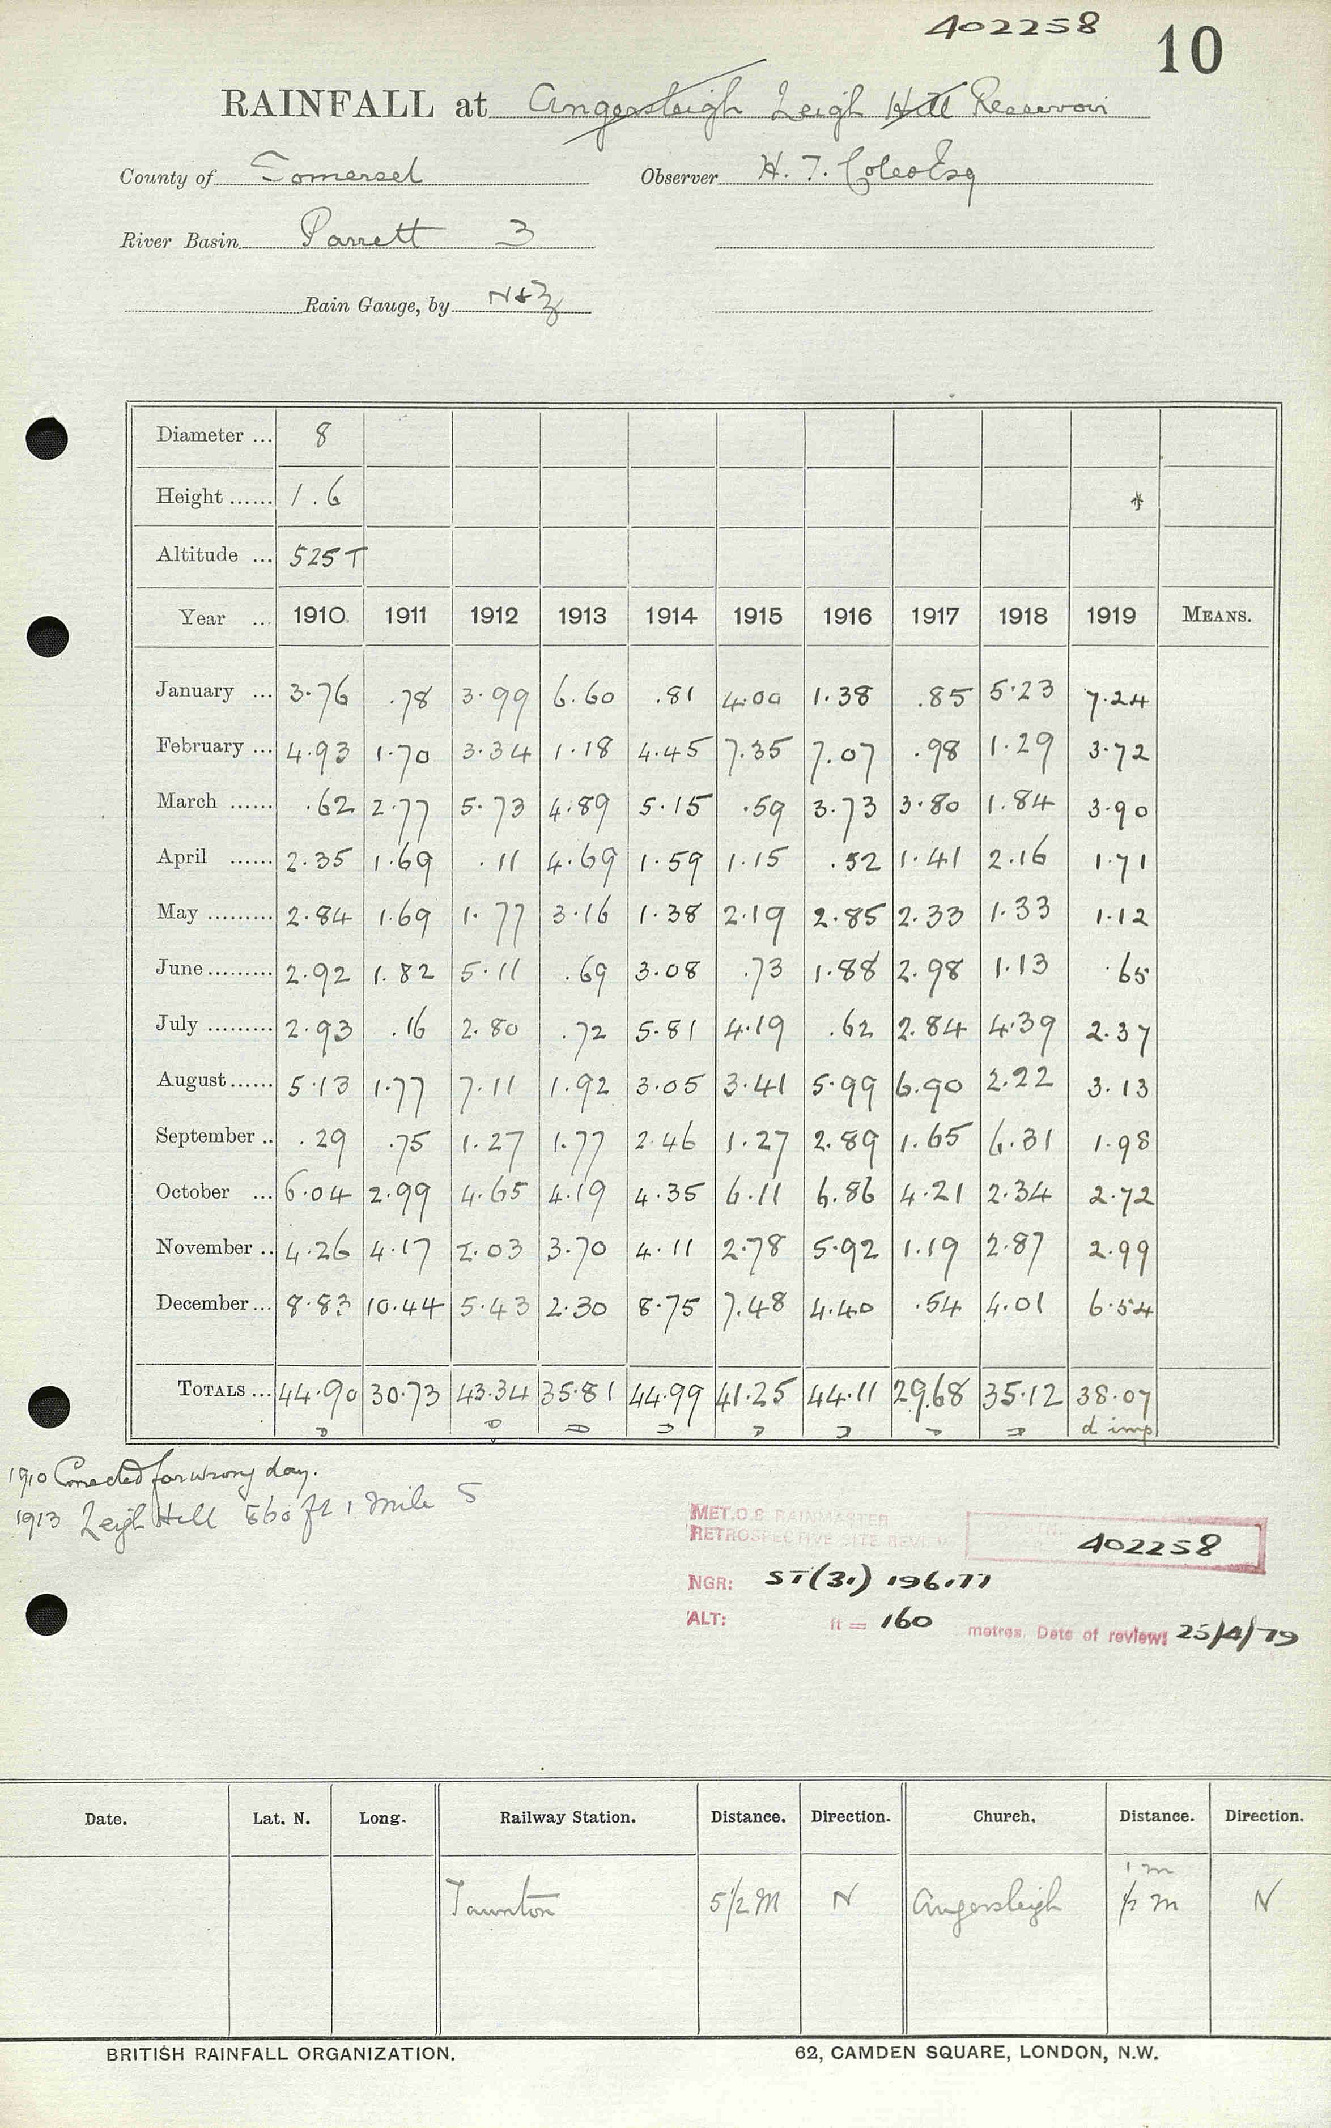 402258 10
RAINFALL at Angersleigh Leigh Hill Reservoir
County of Somerset Observer H. T. Coles Esq
River Basin Parrett 3
Rain Gauge, by N&Z
Diameter ... 8
Height ...... 1.6
Altitude ... 525 T
Year ... 1910 1911 1912 1913 1914 1915 1916 1917 1918 1919 MEANS.
January ... 3.76 .78 3.99 6.60 .81 4.00 1.38 .85 5.23 7.24
February ... 4.93 1.70 3.34 1.18 4.45 7.35 7.07 .98 1.29 3.72
March ...... .62 2.77 5.73 4.89 5.15 .59 3.73 3.80 1.84 3.90
April ...... 2.35 1.69 .11 4.69 1.59 1.15 .52 1.41 2.16 1.71
May ......... 2.84 1.69 1.77 3.16 1.38 2.19 2.85 2.33 1.33 1.12
June ......... 2.92 1.82 5.11 .69 3.08 .73 1.88 2.98 1.13 .65
July ......... 2.93 .16 2.80 .72 5.81 4.19 .62 2.84 4.39 2.37
August ...... 5.13 1.77 7.11 1.92 3.05 3.41 5.99 6.90 2.22 3.13
September .. .29 .75 1.27 1.77 2.46 1.27 2.89 1.65 6.31 1.98
October ... 6.04 2.99 4.65 4.19 4.35 6.11 6.86 4.21 2.34 2.72
November .. 4.26 4.17 2.03 3.70 4.11 2.78 5.92 1.19 2.87 2.99
December ... 8.83 10.44 5.43 2.30 8.75 7.48 4.40 .54 4.01 6.54
TOTALS ... 44.90 30.73 43.34 35.81 44.99 41.25 44.11 29.68 35.12 38.07
D D D D D D D D d imp
1910 Corrected for wrong day.
1913 Leigh Hill 560 ft 1 Mile S
MET.O.8 RAINMASTER
RETROSPECTIVE SITE REVIEW 402258
NGR: ST(31) 196.177
ALT: ft = 160 metres. Date of review: 25/4/79
Date. Lat. N. Long. Railway Station. Distance. Direction. Church. Distance. Direction.
1 m
Taunton 5 1/2 M N Angersleigh 1/2 m N
BRITISH RAINFALL ORGANIZATION. 62, CAMDEN SQUARE, LONDON, N.W.